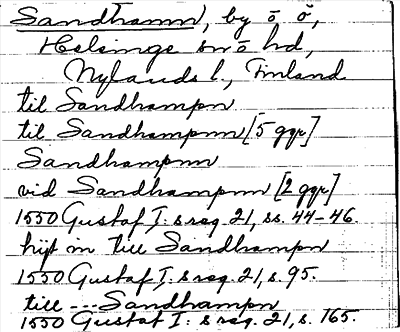 Sandhamn, by o o,
Helsinge sn o hd,
Nylands l., Finland
til Sandhampn
til Sandhampnn [5 ggr]
Sandhampnn
vid Sandhampnn [2 ggr]
1550 Gustaf I: s reg. 21, ss. 44-46.
hijt in till Sandhampn
1550 Gustaf I: s reg. 21, s. 95.
till --- Sandhampn
1550 Gustaf I: s reg. 21, s. 165.